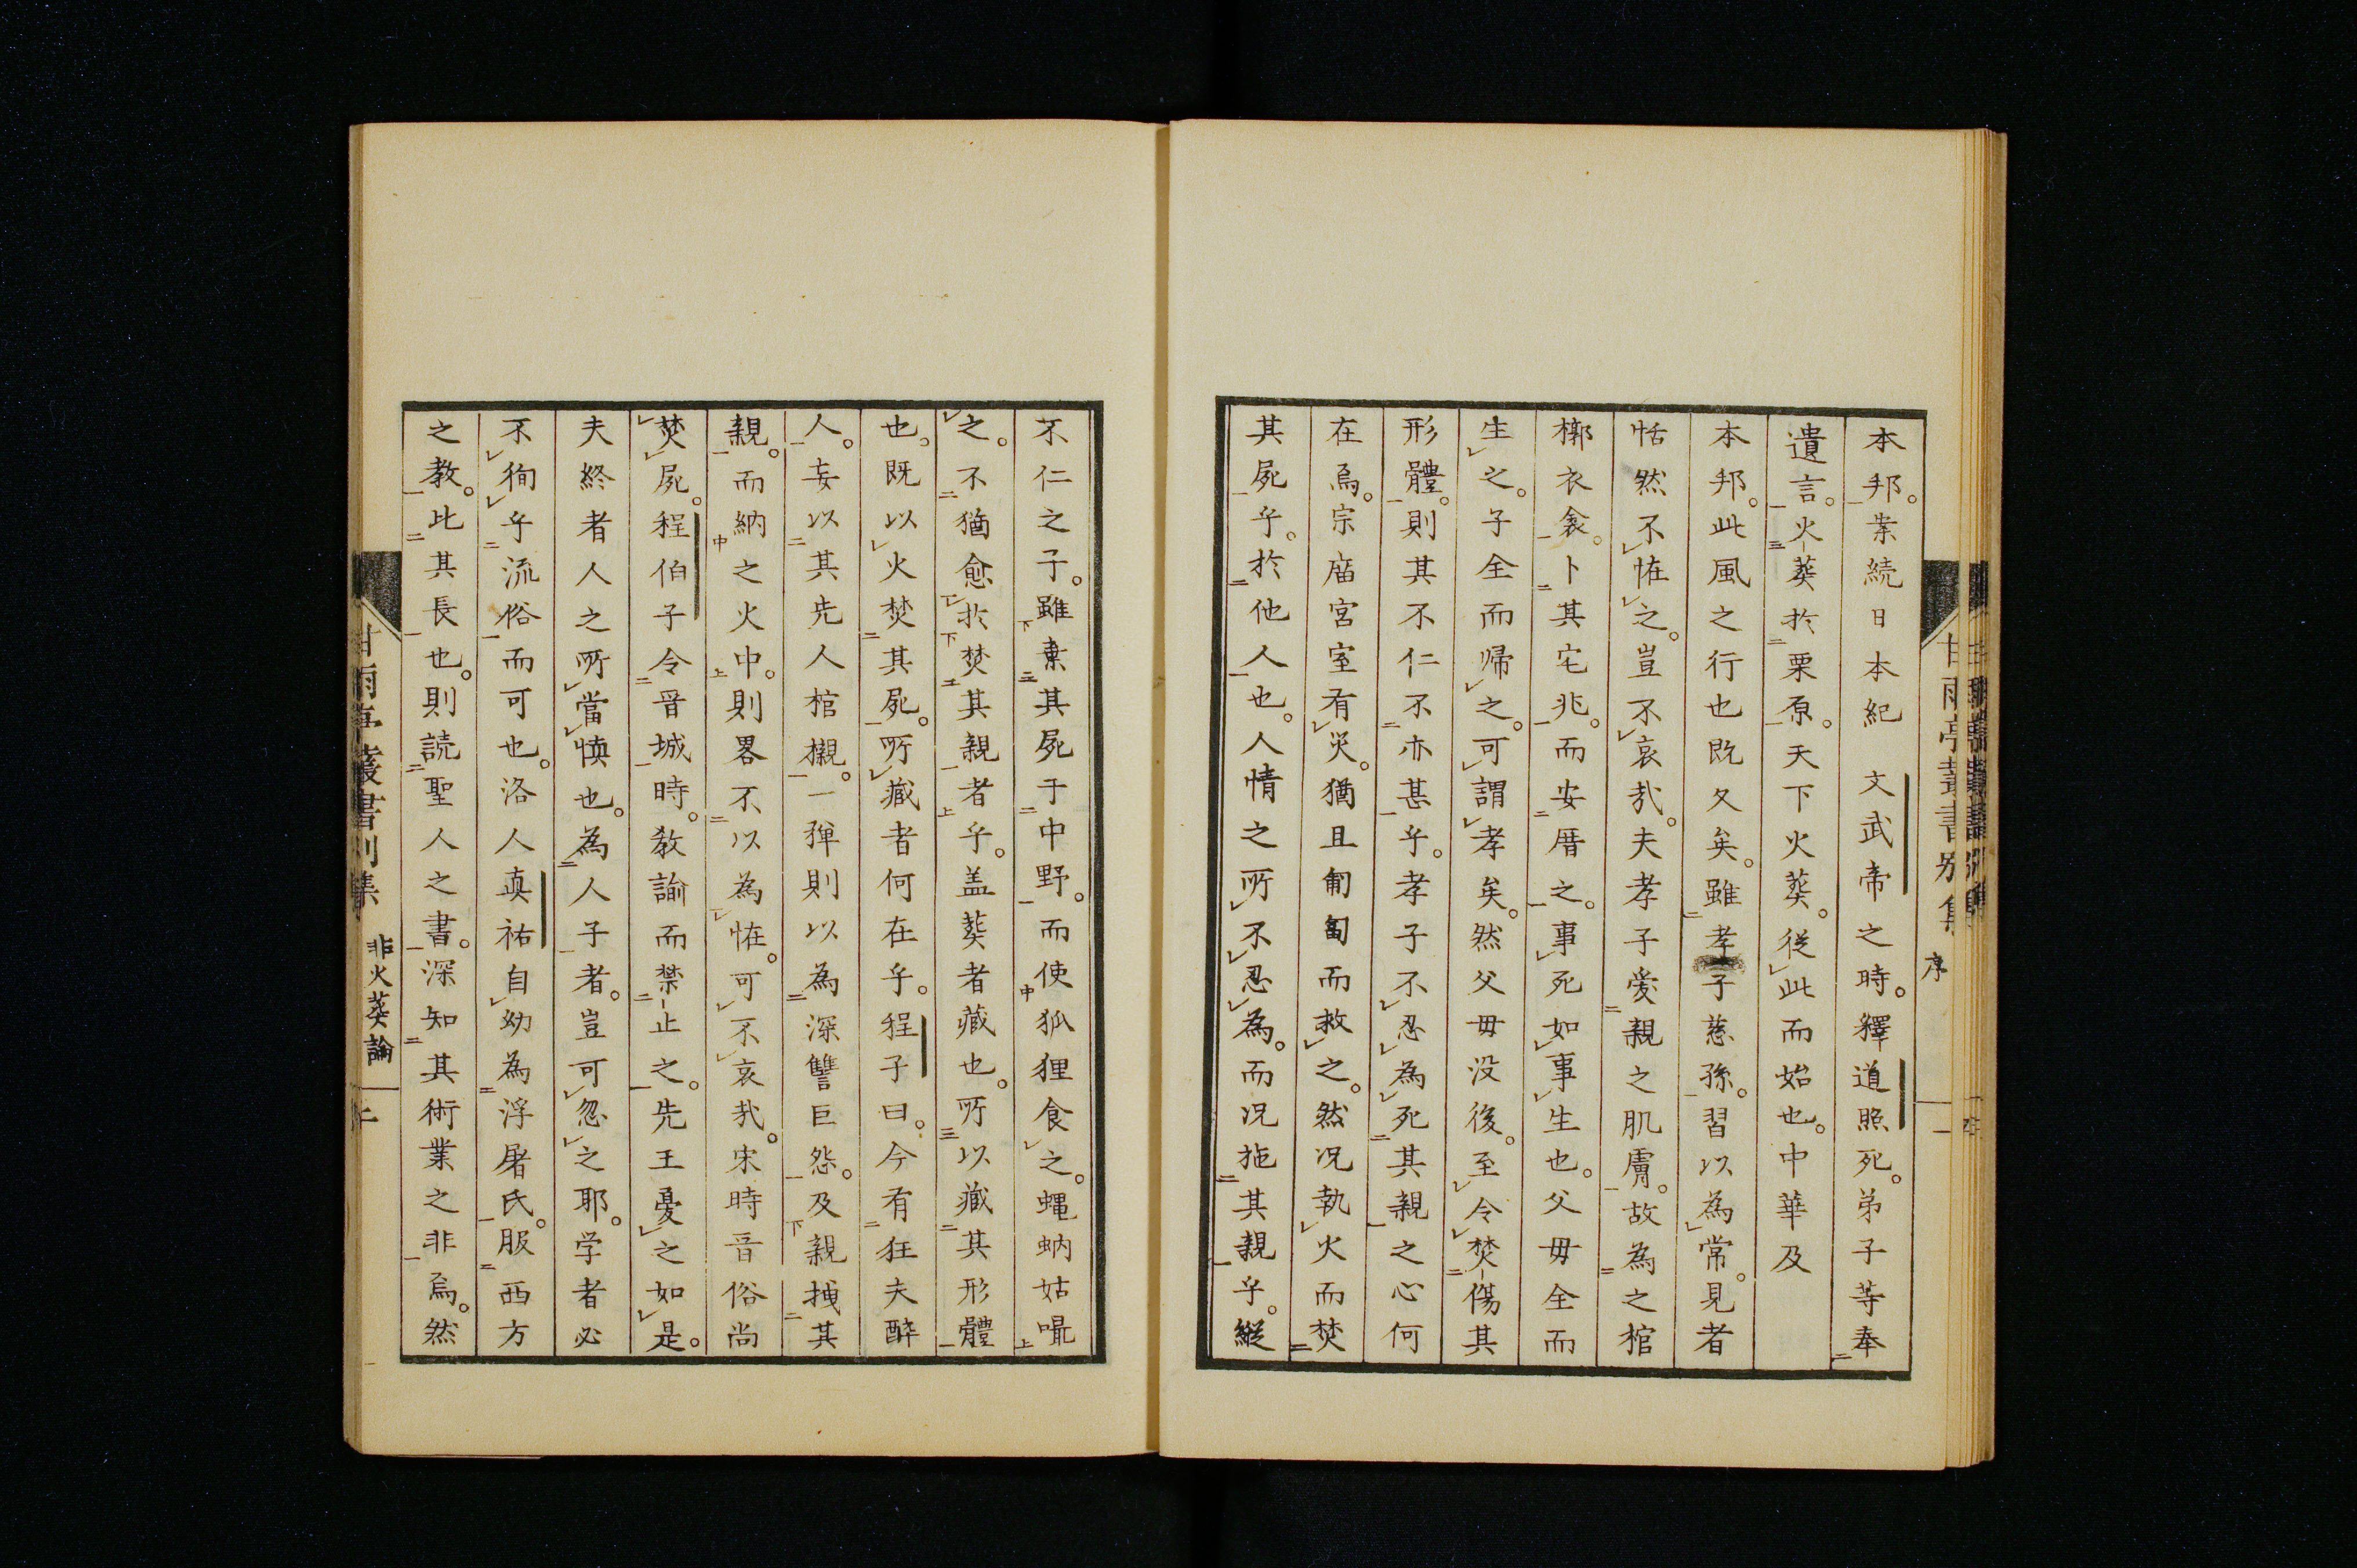 本邦。業続日本紀　文武帝之時。釋道照死。弟子等奉
遺言。火葬於栗原。天下火葬。從此而始也。中華及
本邦。此風之行也既久矣。雖孝子慈孫。習以為常。見者
恬然不恠之。豈不哀哉。夫孝子愛親之肌膚。故為之棺
槨衣衾。卜其宅兆。而安厝之。事死如事生也。父毋全而
生之。子全而帰之。可謂孝矣。然父毋没後。至令焚傷其
形體。則其不仁不亦甚乎。孝子不忍為死其親之心何
在焉。宗庿宮室有災。猶且匍匐而救之。然况執火而焚
其屍乎。於他人也。人情之所不忍為。而况施其親乎。縦
不仁之子。雖棄其屍于中野。而使狐狸食之。蠅蚋姑嘬
之。不猶愈於焚其親者乎。盖葬者藏也。所以藏其形體
也。既以火焚其屍。所藏者何在乎。程子曰。今有狂夫醉
人。妄以其先人棺櫬。一弾則以為深讐巨怨。及親拽其
親。而納之火中。則畧不以為恠。可不哀哉。宋時晋俗尚
焚屍。程伯子令晋城時。教諭而禁止之。先王憂之如是。
夫終者人之所當慎也。為人子者。豈可忽之耶。学者必
不徇乎流俗而可也。洛人真祐自幼為浮屠氏。服西方
之教。比其長也。則読聖人之書。深知其術業之非焉。然
甘雨亭叢書别集　序　一
甘雨亭叢書别集　非火葬論　上